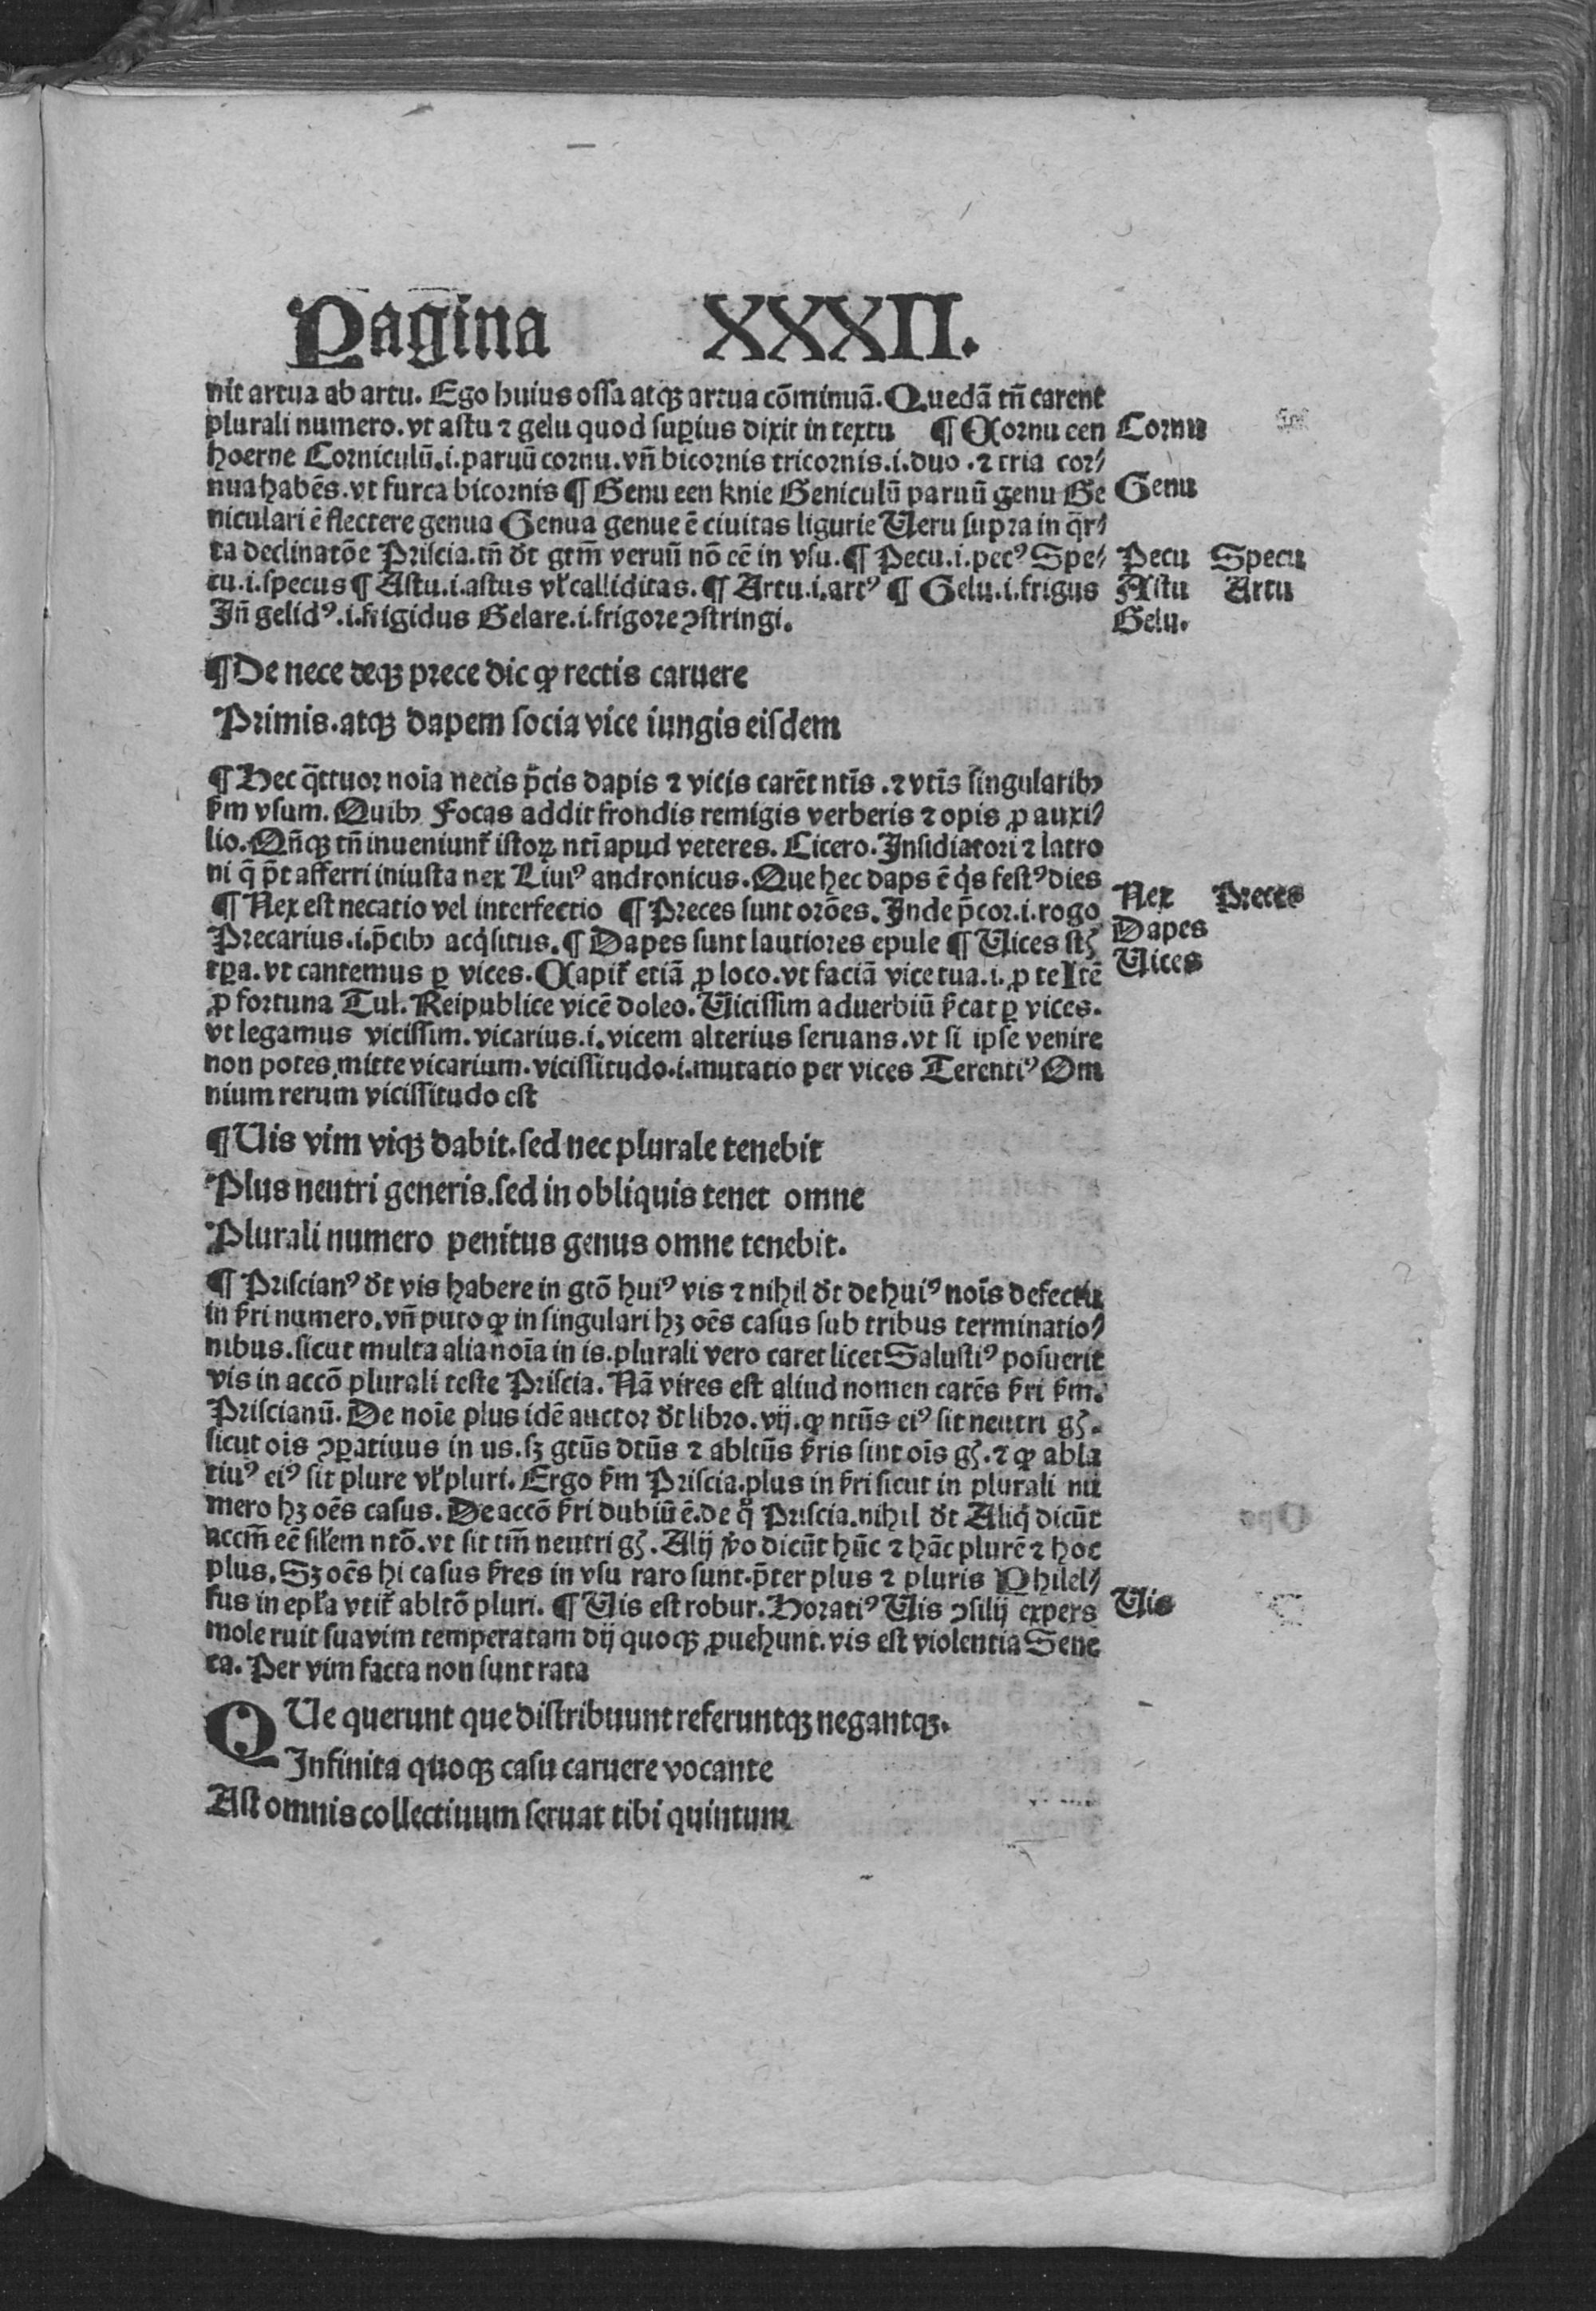 Pagina XXXII.
nit artua ab artu. Ego huius ossa atqꝫ artua cōminuā. Quedā tñ carent
plurali numero. vt astu ⁊ gelu quod suꝑius dixit in textu ¶ Cornu een
Cornu
hoerne Corniculū.i.paruū cornu. vñ bicornis tricornis.i.duo .⁊ tria cor⸗
nua habēs. vt furca bicornis ¶ Genu een knie Geniculū paruū genu Ge
Genu
niculari ē flectere genua Genua genue ē ciuitas ligurie Ueru supra in q̄r⸗
ta declinatōe Priscia. tñ dt̄ gtm̄ veruū nō eē in vsu. ¶ Pecu.i.pecꝰ Spe⸗
Pecu Specu
cu.i.specus ¶ Astu.i.astus vł calliditas. ¶ Artu.i.artꝰ ¶ Gelu.i.frigus
Astu Artu
Jñ gelidꝰ.i.frigidus Gelare.i.frigore ꝯstringi.
Gelu.
¶ De nece deqꝫ prece dic ꝙ rectis caruere
Primis.atqꝫ dapem socia vice iungis eisdem
¶ Hec q̄ttuor noīa necis p̄cis dapis ⁊ vicis carēt ntīs .⁊ vtīs singularibꝰ
km vsum. Quibꝰ Focas addit frondis remigis verberis ⁊ opis ꝓ auxi⸗
lio. Qñqꝫ tñ inueniunt᷑ istoꝝ ntī apud veteres. Cicero. Jnsidiatori ⁊ latro
ni q̄ p̄t afferri iniusta nex Liuiꝰ andronicus. Que hec daps ē q̇s festꝰ dies
¶ Nex est necatio vel interfectio ¶ Preces sunt orōes. Jnde p̄cor.i.rogo
Nex Preces
Precarius.i.p̄cibꝰ acq̇situs. ¶ Dapes sunt lautiores epule ¶ Uices st̄
Dapes
tꝑa. vt cantemus ꝑ vices. Capit᷑ etiā ꝓ loco. vt faciā vice tua.i. ꝓ te Jtē
Uices
ꝓ fortuna Tul. Reipublice vicē doleo. Uicissim aduerbiū ſcat ꝑ vices.
vt legamus vicissim. vicarius.i. vicem alterius seruans. vt si ipse venire
non potes, mitte vicarium. vicissitudo.i.mutatio per vices Terentiꝰ Om
nium rerum vicissitudo est
¶ Uis vim viqꝫ dabit. sed nec plurale tenebit
Plus neutri generis. sed in obliquis tenet omne
Plurali numero penitus genus omne tenebit.
¶ Priscianꝰ dt̄ vis habere in gtō huiꝰ vis ⁊ nihil dt̄ de huiꝰ noīs defectu
in ſri numero. vñ puto ꝙ in singulari hꝫ oēs casus sub tribus terminatio⸗
nibus. sicut multa alia noīa in is. plurali vero caret licet Salustiꝰ posuerit
vis in accō plurali teste Priscia. Nā vires est aliud nomen carēs ſri ſm.
Priscianū. De noīe plus idē auctor dt̄ libro. vij. ꝙ ntūs eiꝰ sit neutri gꝭ.
sicut oīs ꝯꝑatiuus in us. sꝫ gtūs dtūs ⁊ abltūs ſris sint oīs gꝭ. ⁊ ꝙ abla
tiuꝰ eiꝰ sit plure vł pluri. Ergo ſm Priscia. plus in ſri sicut in plurali nu
mero hꝫ oēs casus. De accō ſri dubiū ē. de q̊ Priscia. nihil dt̄ Aliq̇ dicūt
accm̄ eē siłem ntō. vt sit tm̄ neutri gꝭ. Alij v̊o dicūt hūc ⁊ hāc plurē ⁊ hoc
plus. Sꝫ oēs hi casus ſres in vsu raro sunt. p̄ter plus ⁊ pluris Philel⸗
fus in epła vtit᷑ abltō pluri. ¶ Uis est robur. Horatiꝰ Uis ꝯsilij expers
Uis
mole ruit sua vim temperatam dij quoqꝫ ꝓuehunt. vis est violentia Sene
ca. Per vim facta non sunt rata
QUe querunt que distribuunt referuntqꝫ negantqꝫ.
Jnfinita quoqꝫ casu caruere vocante
Ast omnis collectiuum seruat tibi quintum